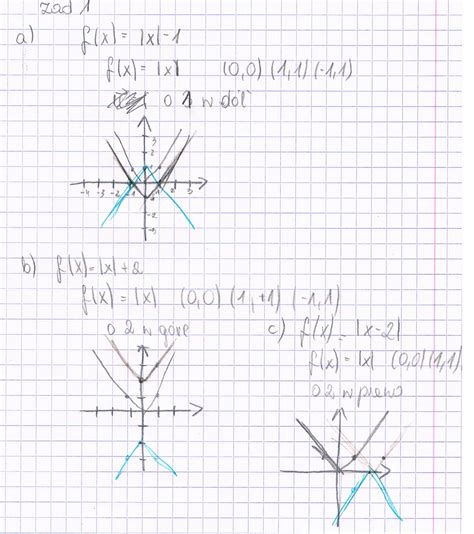 zad 1
a) f(x) = |x| - 1
f(x) = |x| (0,0) (1,1) (-1,1)
o 1 w dół
3
2
-4 -3 -2 -1 1 2 3
-2
-3
b) f(x) = |x| + 2
f(x) = |x| (0,0) (1,+1) (-1,1)
o 2 w górę
c) f(x) = |x-2|
f(x) = |x| (0,0) (1,1)
o 2 w prawo